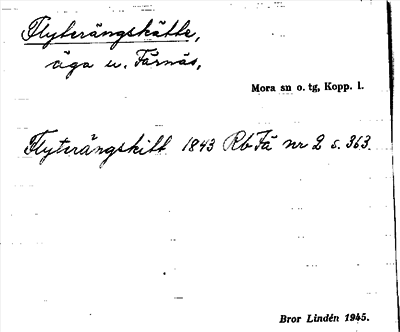 Flyterängskätte,
äga u. Färnäs,
Mora sn o. tg, Kopp. l.
Flyterängskitt 1843 Rb Fä nr 2 s. 363.
Bror Lindén 1945.